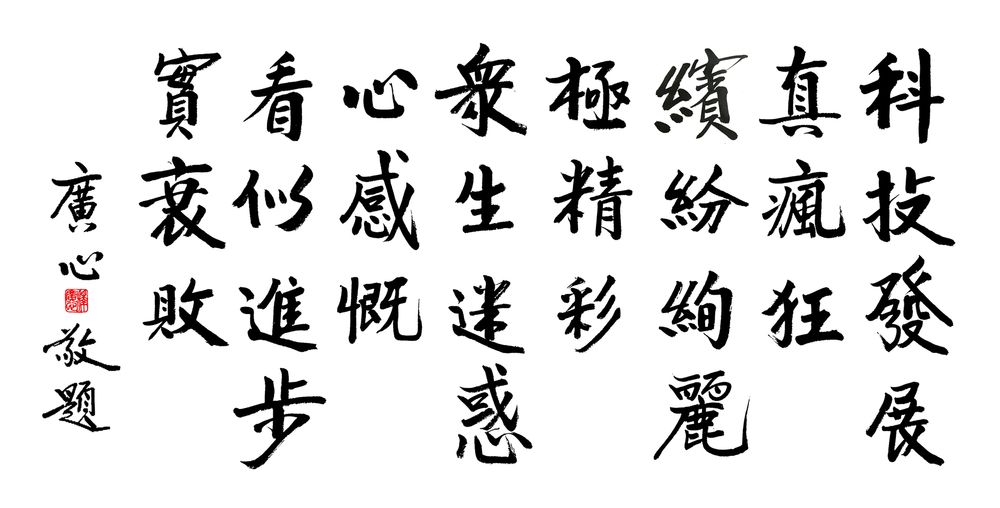 科技發展
真瘋狂
繽紛絢麗
極精彩
眾生迷惑
心感慨
看似進步
實衰敗
廣心敬題